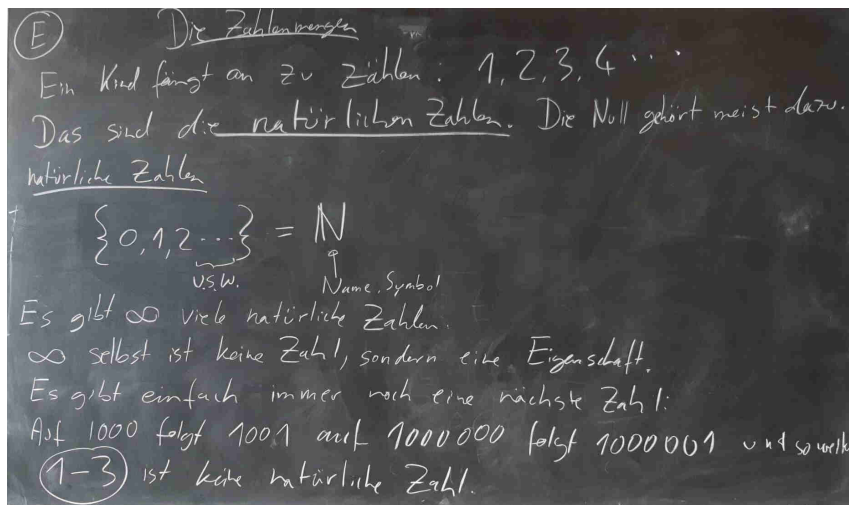 E Die Zahlenmengen
Ein Kind fängt an zu zählen: 1, 2, 3, 4 ...
Das sind die natürlichen Zahlen. Die Null gehört meist dazu.
natürliche Zahlen
{0, 1, 2 ...} = ℕ
u.s.w.
Name, Symbol
Es gibt ∞ viele natürliche Zahlen.
∞ selbst ist keine Zahl, sondern eine Eigenschaft.
Es gibt einfach immer noch eine nächste Zahl:
Auf 1000 folgt 1001 auf 1000000 folgt 1000001 und so weiter
1-3 ist keine natürliche Zahl.